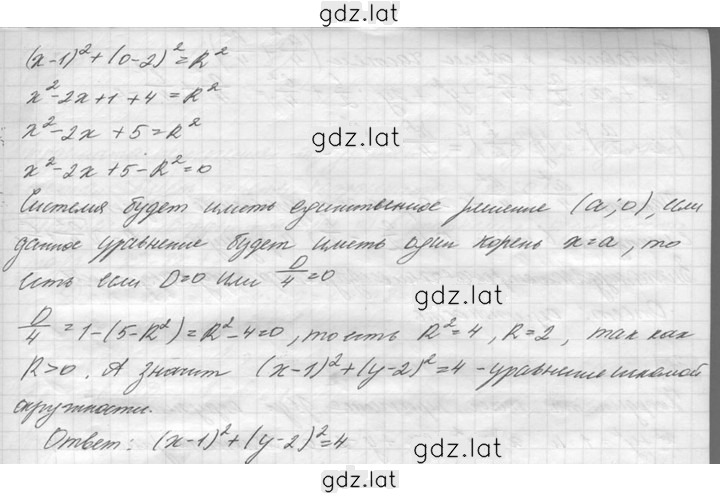 gdz.lat
(x-1)²+(0-2)²=R²
x²-2x+1+4=R²
x²-2x+5=R²
gdz.lat
x²-2x+5-R²=0
Система будет иметь единственное решение (a;0), если
данное уравнение будет иметь один корень x=a, то
есть если D=0 или D/4=0
gdz.lat
D/4=1-(5-R²)=R²-4=0, то есть R²=4, R=2, так как
R>0. А значит (x-1)²+(y-2)²=4 - уравнение искомой
окружности.
Ответ: (x-1)²+(y-2)²=4
gdz.lat
gdz.lat